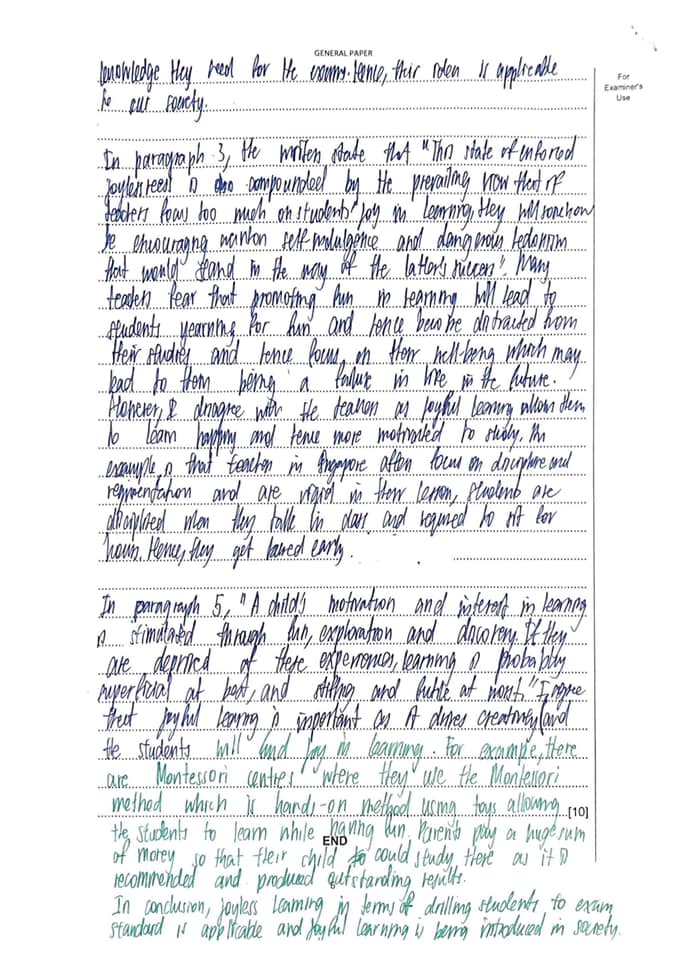 GENERAL PAPER
For
Examiner's
Use
knowledge they need for the exams. Hence, their idea is applicable
to our society.
In paragraph 3, the writer state that "This state of enforced
joylessness is also compounded by the prevailing view that if
teachers focus too much on students' joy in learning, they will somehow
be encouraging wanton self-indulgence and dangerous hedonism
that would stand in the way of the latter's success". Many
teachers fear that promoting fun in learning will lead to
students yearning for fun and hence become distracted from
their studies and hence focus on their well-being which may
lead to them being a failure in life in the future.
However, I disagree with the teachers as joyful learning allows them
to learn happily and hence more motivated to study. An
example is that teachers in Singapore often focus on discipline and
regimentation and are rigid in their lesson, students are
disciplined when they talk in class and required to sit for
hours. Hence, they get bored early.
In paragraph 5, "A child's motivation and interest in learning
is stimulated through fun, exploration and discovery. If they
are deprived of these experiences, learning is probably
superficial at best, and stifling and futile at worst." I agree
that joyful learning is important as it drives creativity and
the students will find joy in learning. For example, there
are Montessori centres where they use the Montessori
method which is hands-on method using toys allowing
[10]
the students to learn while having fun. Parents pay a huge sum
END
of money so that their child could study there as it is
recommended and produced outstanding results.
In conclusion, joyless learning in terms of drilling students to exam
standard is applicable and joyful learning is being introduced in society.